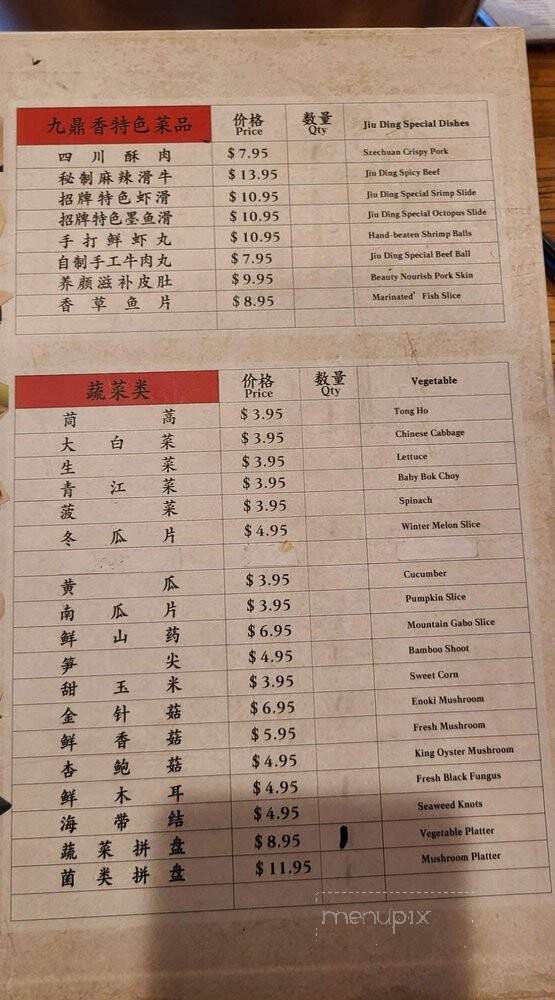 九鼎香特色菜品 价格 Price 数量 Qty Jiu Ding Special Dishes
四川酥肉 $7.95 Szechuan Crispy Pork
秘制麻辣滑牛 $13.95 Jiu Ding Spicy Beef
招牌特色虾滑 $10.95 Jiu Ding Special Srimp Slide
招牌特色墨鱼滑 $10.95 Jiu Ding Special Octopus Slide
手打鲜虾丸 $10.95 Hand-beaten Shrimp Balls
自制手工牛肉丸 $7.95 Jiu Ding Special Beef Ball
养颜滋补皮肚 $9.95 Beauty Nourish Pork Skin
香草鱼片 $8.95 Marinated Fish Slice
蔬菜类 价格 Price 数量 Qty Vegetable
茼蒿 $3.95 Tong Ho
大白菜 $3.95 Chinese Cabbage
生菜 $3.95 Lettuce
青江菜 $3.95 Baby Bok Choy
菠菜 $3.95 Spinach
冬瓜片 $4.95 Winter Melon Slice
黄瓜 $3.95 Cucumber
南瓜片 $3.95 Pumpkin Slice
鲜山药 $6.95 Mountain Gabo Slice
笋尖 $4.95 Bamboo Shoot
甜玉米 $3.95 Sweet Corn
金针菇 $6.95 Enoki Mushroom
鲜香菇 $5.95 Fresh Mushroom
杏鲍菇 $4.95 King Oyster Mushroom
鲜木耳 $4.95 Fresh Black Fungus
海带结 $4.95 Seaweed Knots
蔬菜拼盘 $8.95 Vegetable Platter
菌类拼盘 $11.95 Mushroom Platter
menupix